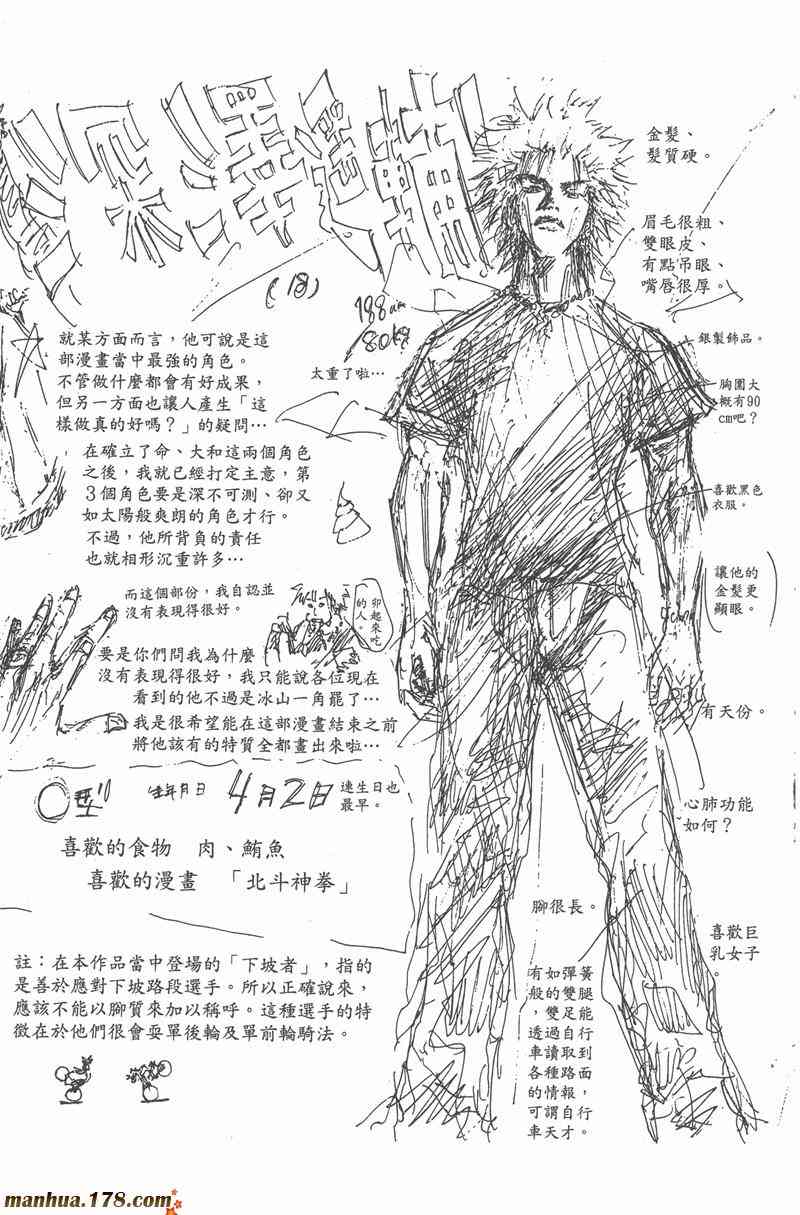 (18)
188cm
80kg
太重了啦…
金髮、
髮質硬。
眉毛很粗、
雙眼皮、
有點吊眼、
嘴唇很厚。
銀製飾品。
胸圍大
概有90
cm吧？
喜歡黑色
衣服。
讓他的
金髮更
顯眼。
有天份。
心肺功能
如何？
喜歡巨
乳女子
。
腳很長。
有如彈簧
般的雙腿
，雙足能
透過自行
車讀取到
各種路面
的情報，
可謂自行
車天才。
就某方面而言，他可說是這
部漫畫當中最強的角色。
不管做什麼都會有好成果，
但另一方面也讓人產生「這
樣做真的好嗎？」的疑問…
在確立了命、大和這兩個角色
之後，我就已經打定主意，第
３個角色要是深不可測、卻又
如太陽般爽朗的角色才行。
不過，他所背負的責任
也就相形沉重許多…
而這個部份，我自認並
沒有表現得很好。
卯起來吃
的人。
要是你們問我為什麼
沒有表現得很好，我只能說各位現在
看到的他不過是冰山一角罷了…
我是很希望能在這部漫畫結束之前
將他該有的特質全都畫出來啦…
O型
生年月日 4月2日
連生日也
最早。
喜歡的食物 肉、鮪魚
喜歡的漫畫 「北斗神拳」
註：在本作品當中登場的「下坡者」，指的
是善於應對下坡路段選手。所以正確說來，
應該不能以腳質來加以稱呼。這種選手的特
徵在於他們很會耍單後輪及單前輪騎法。
manhua.178.com